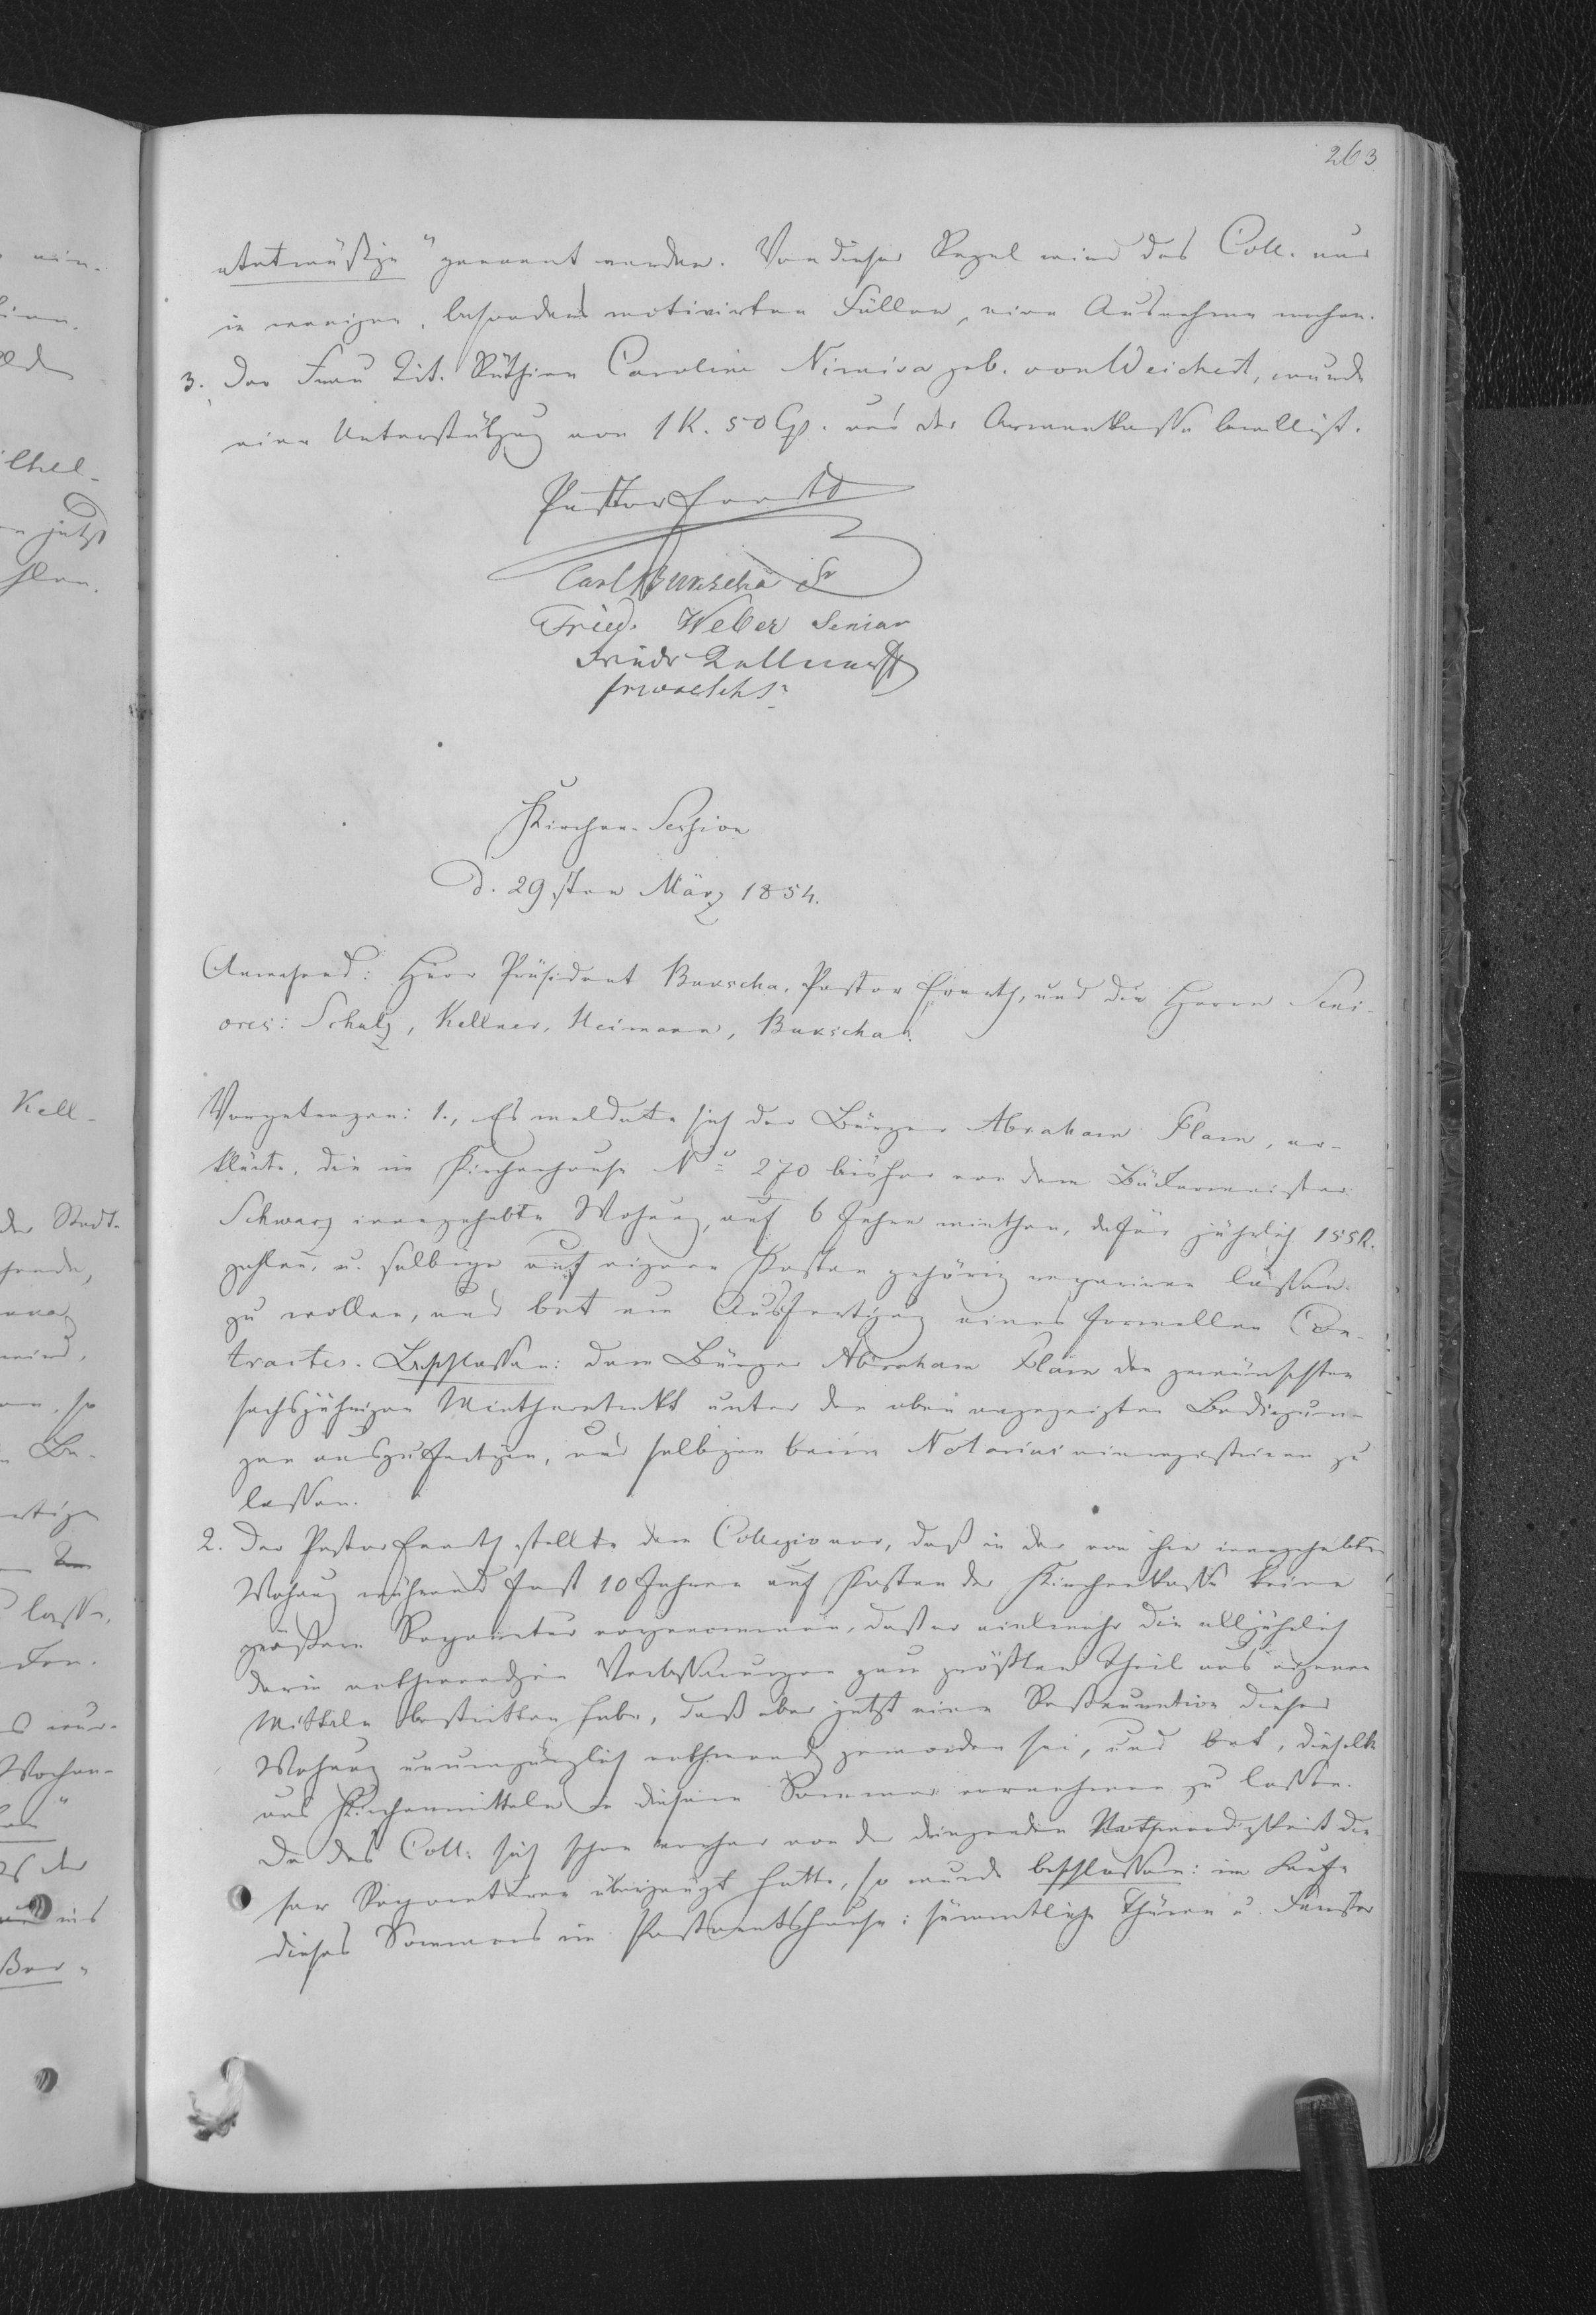 263
etatmäßige" genannt werden. Von dieser Regel wird das Coll. nur
in wenigen, besonders motivirten Fällen, eine Ausnahme machen.
3. Der Frau Tit. Räthin Caroline geb. von Weichert, wurde
eine Unterstützung von 1 R. 50 Cp. aus der Armenkasse bewilligt.
Pastor
Carl Buxscha Sr
Fried. Weber Senior
Friedr Kellner
Kirchen-Session
d. 29sten März 1854.
Anwesend: Herr Präsident Buxscha, Pastor und die Herrn Seni-
ores: Schulz, Kellner, Heimann, Buxscha.
Vorgetragen: 1., Es meldete sich der Bürger Abraham Flam, er-
klärte, die im Kirchenhause No 270 bisher von dem Bäckermeister
Schwarz innegehabte Wohnung, auf 6 Jahre miethen, dafür jährlich 155 R.
zahlen, u. selbige auf eigene Kosten gehörig repariren lassen
zu wollen, und bat um Ausfertigung eines formellen Con-
tractes. Beschlossen: dem Bürger Abraham Flam den gewünschten
sechsjährigen Miethcontrakt unter den oben angezeigten Bedingun-
gen auszufertigen, und selbigen beim Notarius einregistriren zu
lassen.
2. Der Pastor stellte dem Collegio vor, daß in der von ihm innegehabten
Wohnung während fast 10 Jahren auf Kosten der Kirchenkasse keine
größere Reparatur vorgenommen, daß er vielmehr die alljährlich
darin nothwendigen Verbesserungen zum größten Theil aus eigenen
Mitteln bestritten habe, daß aber jetzt eine Restauration dieser
Wohnung unumgänglich nothwendig geworden sei, und bat, dieselbe
aus Kirchenmitteln in diesem Sommer vornehmen zu lassen.
Da das Coll: sich schon vorher von der dringenden Nothwendigkeit die-
ser Reparaturen überzeugt hatte, so wurde beschlossen: im Laufe
dieses Sommers im Pastoratshause: sämmtliche Thüren u. Fenster